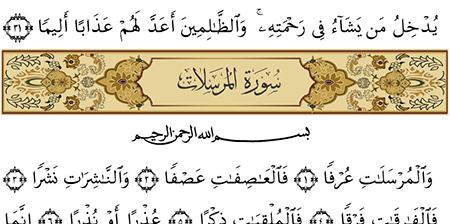 يُدْخِلُ مَن يَشَآءُ فِى رَحْمَتِهِۦ ۚ وَٱلظَّٰلِمِينَ أَعَدَّ لَهُمْ عَذَابًا أَلِيمًۢا ﴿٣١﴾
سُورَةُ المُرْسَلَات
بسم الله الرحمن الرحيم
وَٱلْمُرْسَلَٰتِ عُرْفًا ﴿١﴾ فَٱلْعَٰصِفَٰتِ عَصْفًا ﴿٢﴾ وَٱلنَّٰشِرَٰتِ نَشْرًا ﴿٣﴾
فَٱلْفَٰرِقَٰتِ فَرْقًا ﴿٤﴾ فَٱلْمُلْقِيَٰتِ ذِكْرًا ﴿٥﴾ عُذْرًا أَوْ نُذْرًا ﴿٦﴾ إِنَّمَا